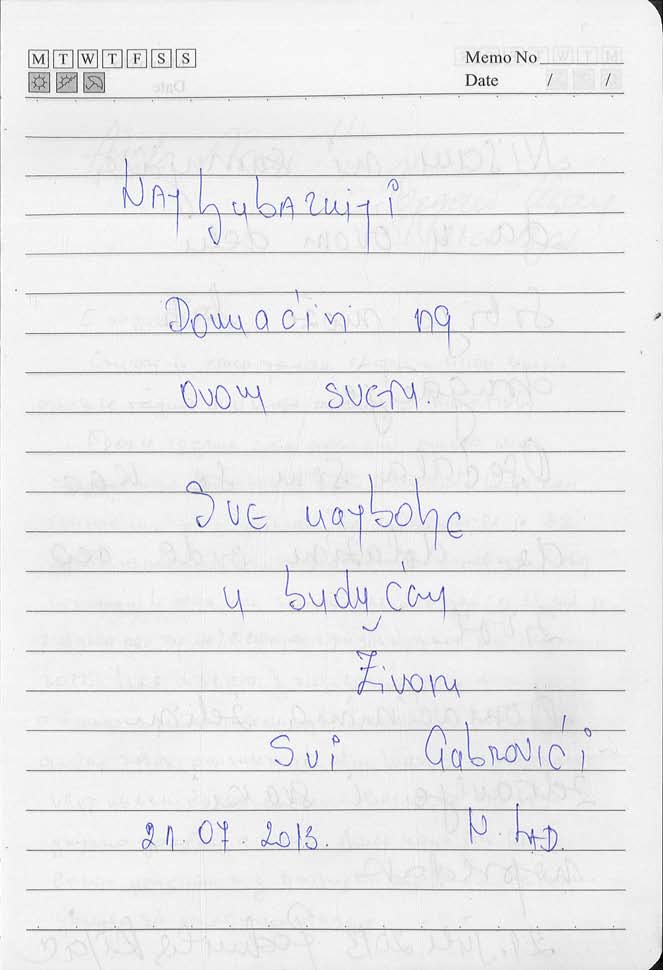 M T W T F S S Memo No
Date / /
Najljubazniji
Domaćini na
ovom svetu.
Sve najbolje
u budućem
Životu
Svi Gabrovići
21.07.2013. N. SAD.